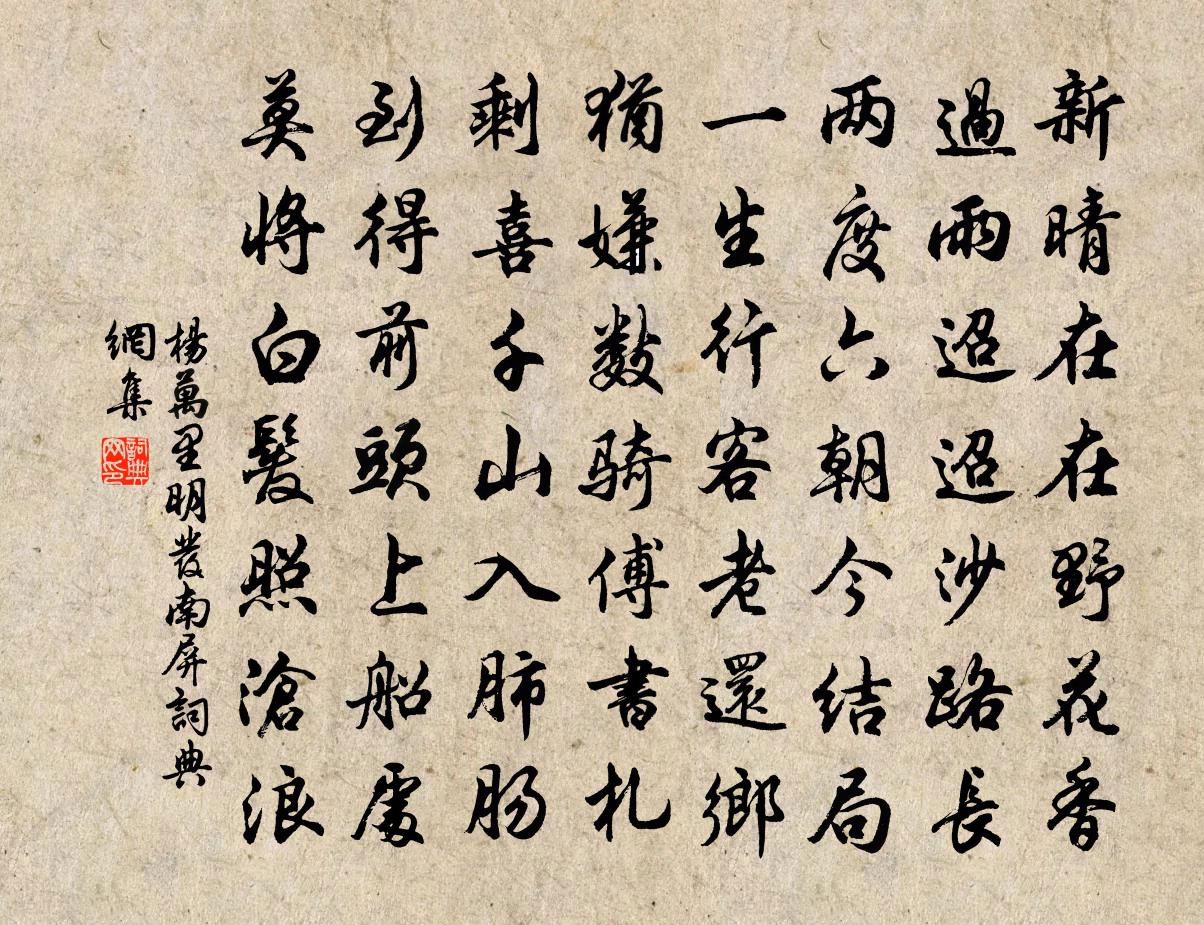 新晴在在野花香
過雨迢迢沙路長
两度六朝今结局
一生行客老還鄉
猶嫌數騎傅書札
剩喜千山入肺肠
到得前頭上船處
莫將白髮照滄浪
楊萬里明發南屏詞典
網集
詞典
网印